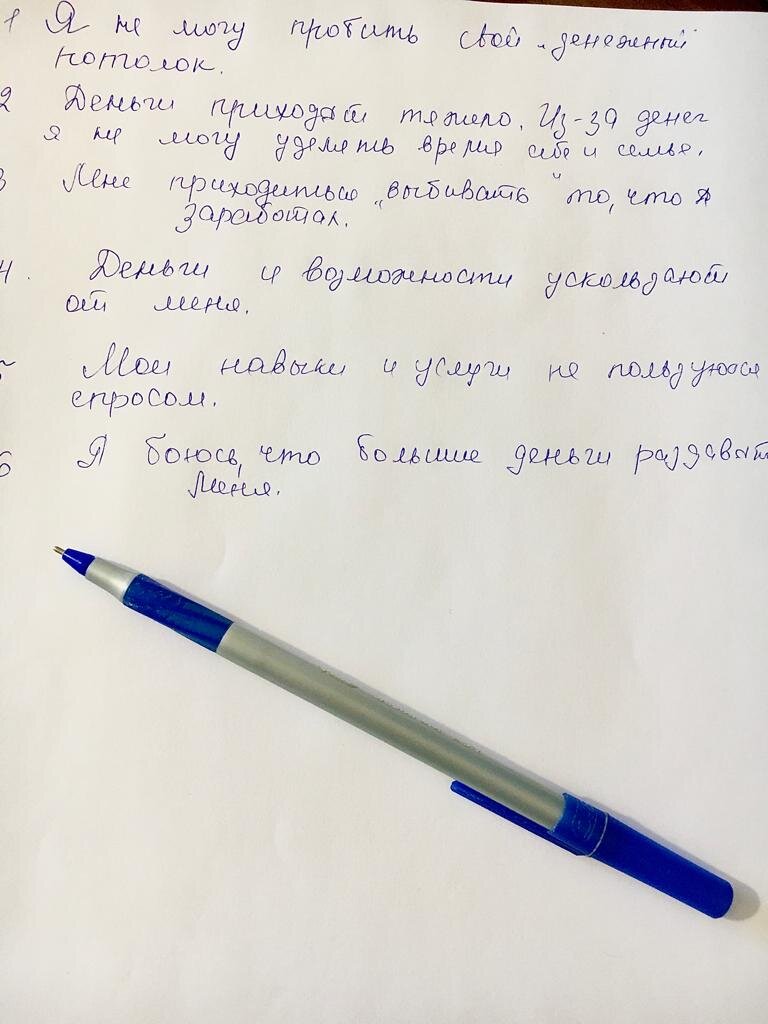 1 Я не могу пробить свой „денежный"
потолок.
2 Деньги приходят тяжело. Из-за денег
я не могу уделять время себе и семье.
3 Мне приходиться „выбивать" то, что я
заработал.
4. Деньги и возможности ускользают
от меня.
5 Мои навыки и услуги не пользуются
спросом.
6 Я боюсь, что большие деньги раздавят
меня.